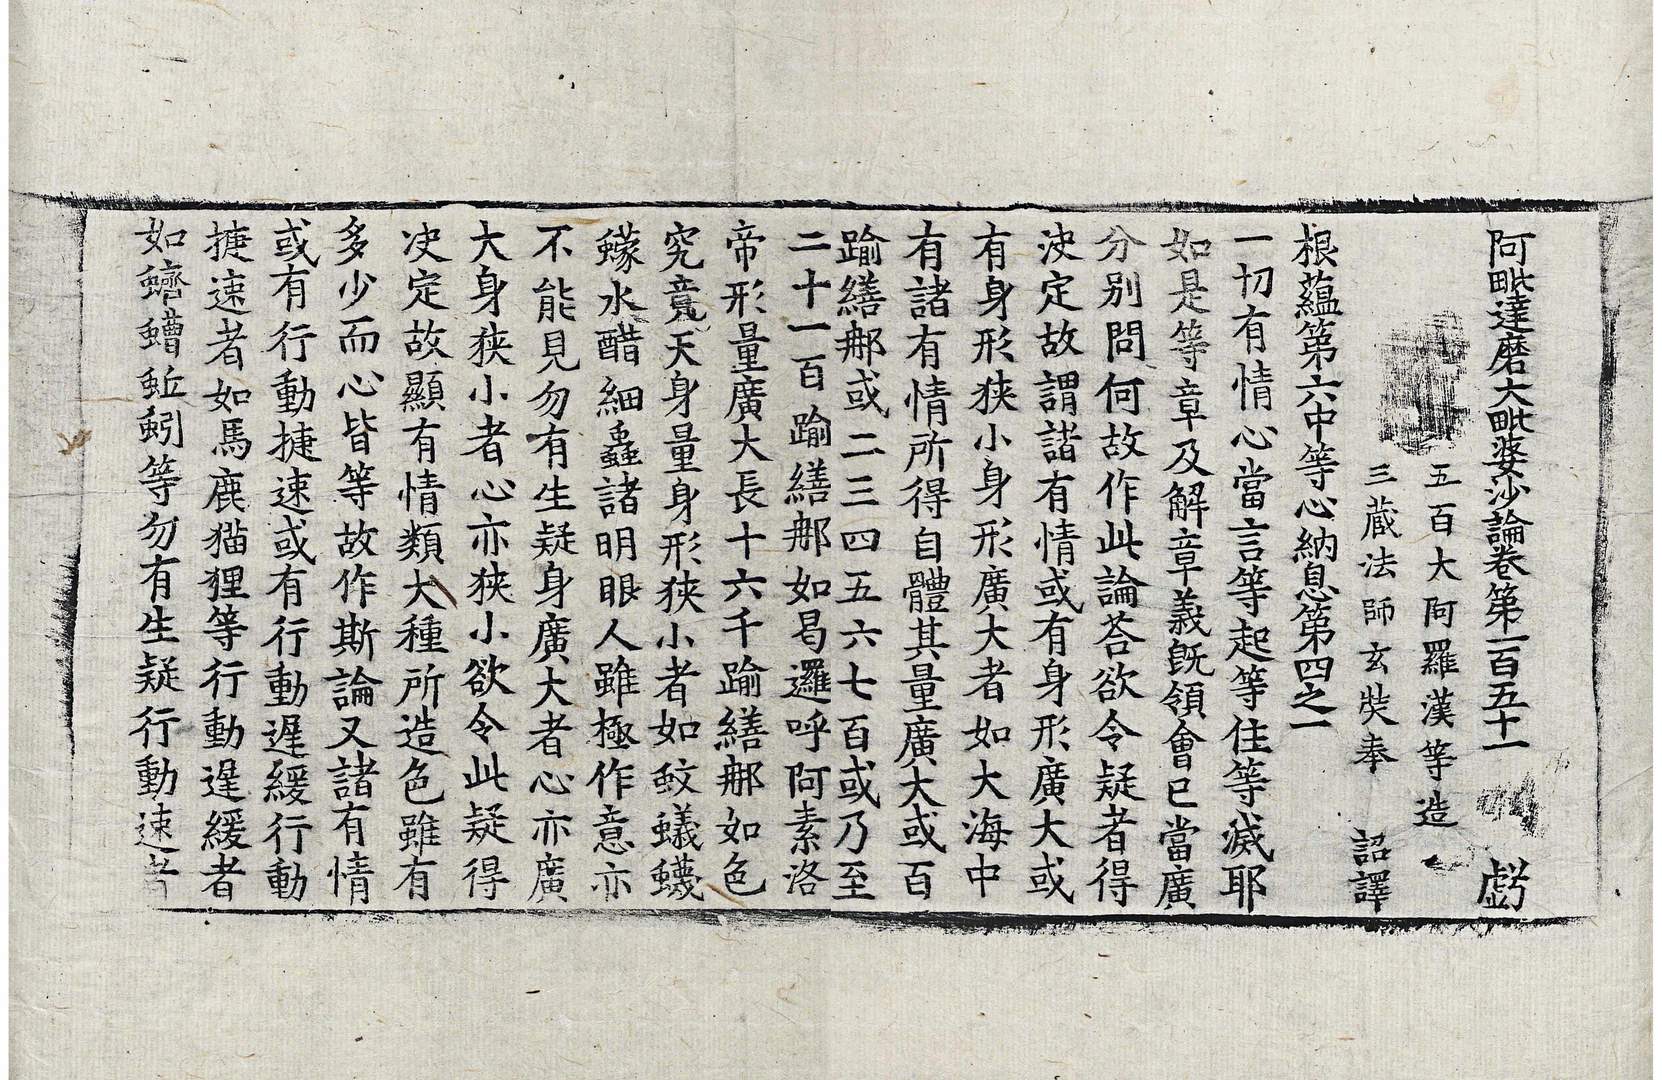 阿毗達磨大毗婆沙論卷第一百五十一 虧
五百大阿羅漢等造
三藏法師玄奘奉 詔譯
根蘊第六中等心納息第四之一
一切有情心當言等起等住等滅耶
如是等章及解章義旣領會已當廣
分別問何故作此論荅欲令疑者得
決定故謂諸有情或有身形廣大或
有身形狹小身形廣大者如大海中
有諸有情所得自體其量廣大或百
踰繕那或二三四五六七百或乃至
二十一百踰繕那如曷邏呼阿素洛
帝形量廣大長十六千踰繕那如色
究竟天身量身形狹小者如蚊蟻蠛
蠓水醋細蟲諸明眼人雖極作意亦
不能見勿有生疑身廣大者心亦廣
大身狹小者心亦狹小欲令此疑得
決定故顯有情類大種所造色雖有
多少而心皆等故作斯論又諸有情
或有行動捷速或有行動遲緩行動
捷速者如馬鹿猫狸等行動遲緩者
如蠐螬蚯蚓等勿有生疑行動速者